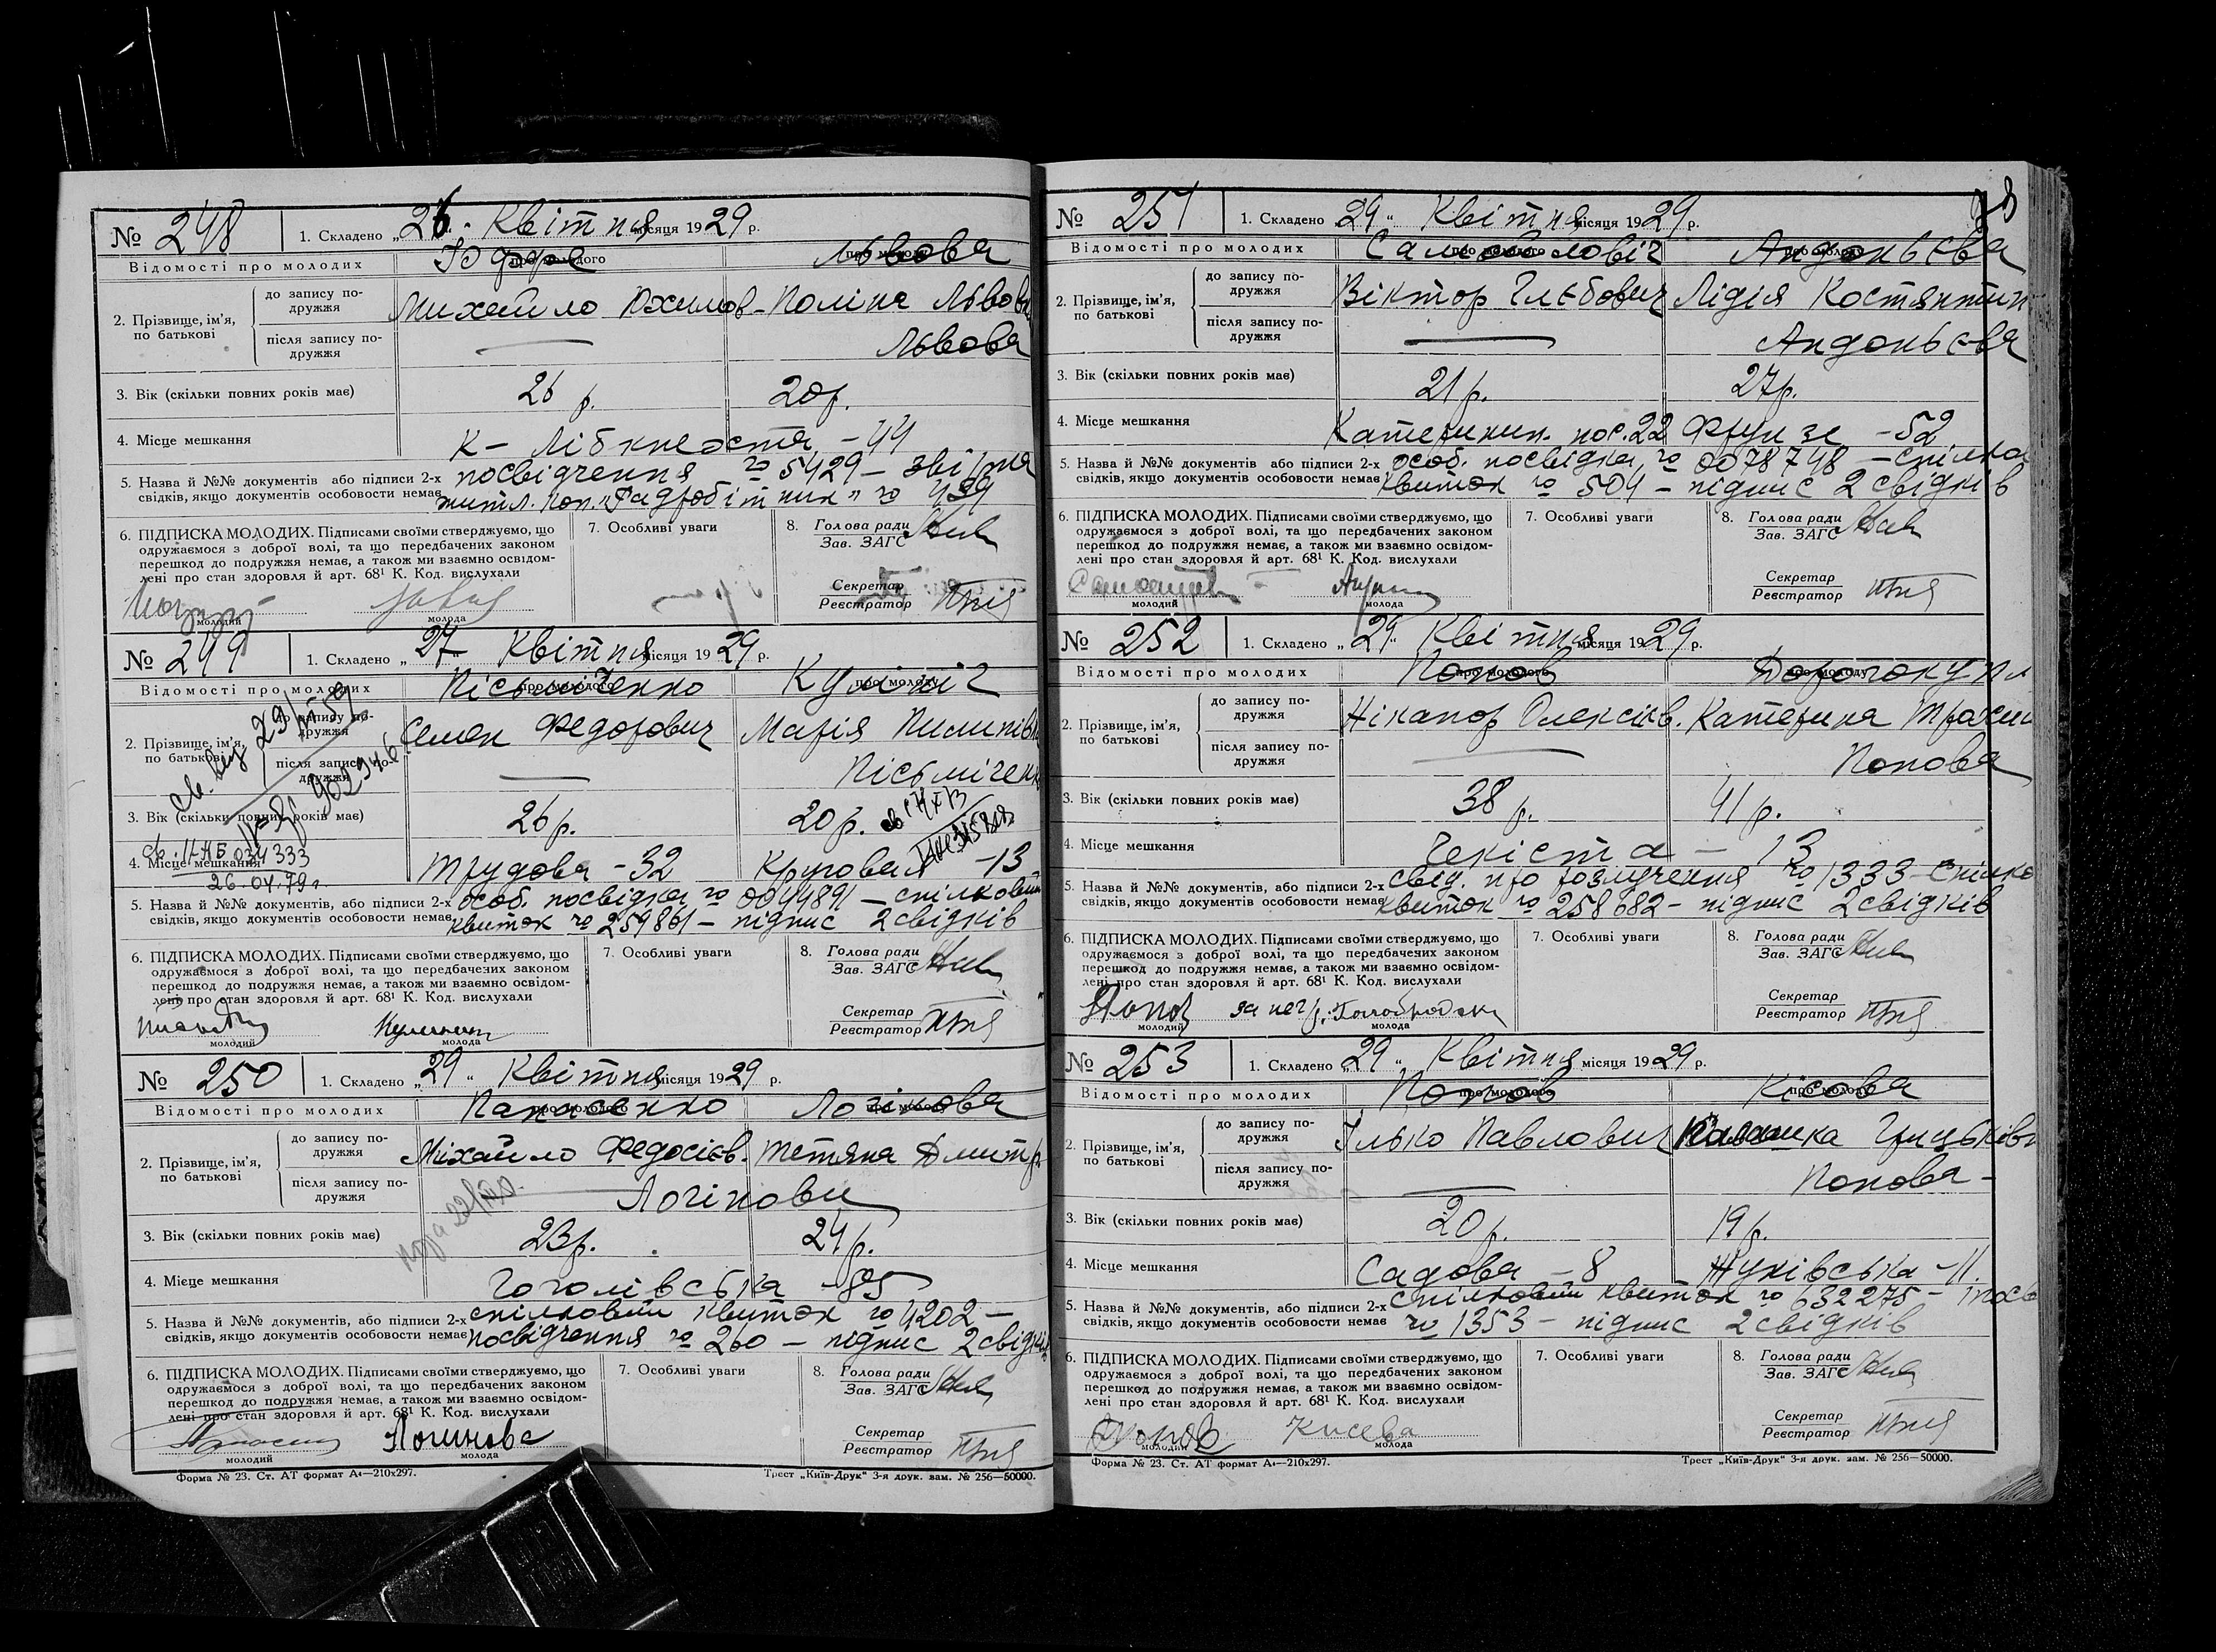 № 248 1. Складено „26„ Квітня місяця 1929 р.
Відомості про молодих про молодого Львова
2. Прізвище, ім'я, по батькові
до запису по-дружжя Михайло Юхимов. Поліна Львовн
після запису по-дружжя — Львова
3. Вік (скільки повних років має) 26 р. 20 р.
4. Місце мешкання К- Лібкнехта - 44
5. Назва й №№ документів або підписи 2-х посвідчення № 5429 -
свідків, якщо документів особовости немає житл. коп. „Радробітник" №
6. ПІДПИСКА МОЛОДИХ. Підписами своїми стверджуємо, що
одружаємося з доброї волі, та що передбачених законом
перешкод до подружжя немає, а також ми взаємно освідом-
лені про стан здоровля й арт. 68¹ К. Код. вислухали
молодий молода
7. Особливі уваги
8. Голова ради
Зав. ЗАГС
Секретар
Реєстратор
№ 249 1. Складено „27„ Квітня місяця 1929 р.
Відомості про молодих Пісьміченко Кулініч
2. Прізвище, ім'я, по батькові
до запису по-дружжя Семен Федорович Марія Пилипівн
після запису по-дружжя — Пісьміченк
3. Вік (скільки повних років має) 26 р. 20 р.
4. Місце мешкання Трудова - 32 Кругова - 13
26.04.79 г.
5. Назва й №№ документів, або підписи 2-х особ. посвідка № 0044891 - спілковий
свідків, якщо документів особовости немає квиток № 259861 - підпис 2 свідків
6. ПІДПИСКА МОЛОДИХ. Підписами своїми стверджуємо, що
одружаємося з доброї волі, та що передбачених законом
перешкод до подружжя немає, а також ми взаємно освідом-
лені про стан здоровля й арт. 68¹ К. Код. вислухали
молодий молода
7. Особливі уваги
8. Голова ради
Зав. ЗАГС
Секретар
Реєстратор
№ 250 1. Складено „29„ Квітня місяця 1929 р.
Відомості про молодих про молодого Логінова
2. Прізвище, ім'я, по батькові
до запису по-дружжя Міхайло Федосієв. Тетяна Дмитр.
після запису по-дружжя Логінови
3. Вік (скільки повних років має) 23 р. 24 р.
4. Місце мешкання Гоголівська
5. Назва й №№ документів, або підписи 2-х спілковий квиток № 4202 -
свідків, якщо документів особовости немає посвідчення № 260 - підпис 2 свідків
6. ПІДПИСКА МОЛОДИХ. Підписами своїми стверджуємо, що
одружаємося з доброї волі, та що передбачених законом
перешкод до подружжя немає, а також ми взаємно освідом-
лені про стан здоровля й арт. 68¹ К. Код. вислухали
Логинова
молодий молода
7. Особливі уваги
8. Голова ради
Зав. ЗАГС
Секретар
Реєстратор
Форма № 23. Ст. АТ формат А₄—210х297. Трест „Київ-Друк" 3-я друк. зам. № 256—50000.
№ 251 1. Складено „29„ Квітня місяця 1929 р.
Відомості про молодих Самойловіч Андоньєва
2. Прізвище, ім'я, по батькові
до запису по-дружжя Віктор Глєбович Лідія Костянтин
після запису по-дружжя — Андоньєва
3. Вік (скільки повних років має) 21 р. 27 р.
4. Місце мешкання Катеринин. пос. 22 Фрунзе - 52
5. Назва й №№ документів або підписи 2-х особ. посвідка № 0078748 - спілко
свідків, якщо документів особовости немає квиток № 504 - підпис 2 свідків
6. ПІДПИСКА МОЛОДИХ. Підписами своїми стверджуємо, що
одружаємося з доброї волі, та що передбачених законом
перешкод до подружжя немає, а також ми взаємно освідом-
лені про стан здоровля й арт. 68¹ К. Код. вислухали
молодий молода
7. Особливі уваги
8. Голова ради
Зав. ЗАГС
Секретар
Реєстратор
№ 252 1. Складено „29„ Квітня місяця 1929 р.
Відомості про молодих Попов
2. Прізвище, ім'я, по батькові
до запису по-дружжя Ніканор Олексієв. Катерина
після запису по-дружжя — Попова
3. Вік (скільки повних років має) 38 р. 41 р.
4. Місце мешкання Чекіста - 13
5. Назва й №№ документів, або підписи 2-х свід. про розлучення № 1333 - спілко
свідків, якщо документів особовости немає квиток № 258682 - підпис 2 свідків
6. ПІДПИСКА МОЛОДИХ. Підписами своїми стверджуємо, що
одружаємося з доброї волі, та що передбачених законом
перешкод до подружжя немає, а також ми взаємно освідом-
лені про стан здоровля й арт. 68¹ К. Код. вислухали
Попов за негр.
молодий молода
7. Особливі уваги
8. Голова ради
Зав. ЗАГС
Секретар
Реєстратор
№ 253 1. Складено „29„ Квітня місяця 1929 р.
Відомості про молодих Попов Кісова
2. Прізвище, ім'я, по батькові
до запису по-дружжя Ілько Павлович Грицьківн
після запису по-дружжя — Попова -
3. Вік (скільки повних років має) 20 р. 19 р.
4. Місце мешкання Садова - 8 Жуківська - 11.
5. Назва й №№ документів, або підписи 2-х спілковий квиток № 632275 - посв
свідків, якщо документів особовости немає № 1353 - підпис 2 свідків
6. ПІДПИСКА МОЛОДИХ. Підписами своїми стверджуємо, що
одружаємося з доброї волі, та що передбачених законом
перешкод до подружжя немає, а також ми взаємно освідом-
лені про стан здоровля й арт. 68¹ К. Код. вислухали
Кисева
молодий молода
7. Особливі уваги
8. Голова ради
Зав. ЗАГС
Секретар
Реєстратор
Форма № 23. Ст. АТ формат А₄—210х297. Трест „Київ-Друк" 3-я друк. зам. № 256—50000.